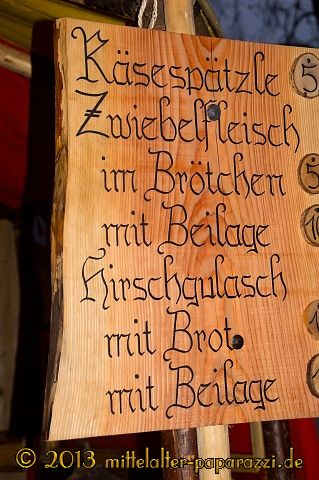 Käsespätzle 5
Zwiebelfleisch
im Brötchen 5
mit Beilage
Hirschgulasch
mit Brot
mit Beilage
© 2013 mittelalter-paparazzi.de